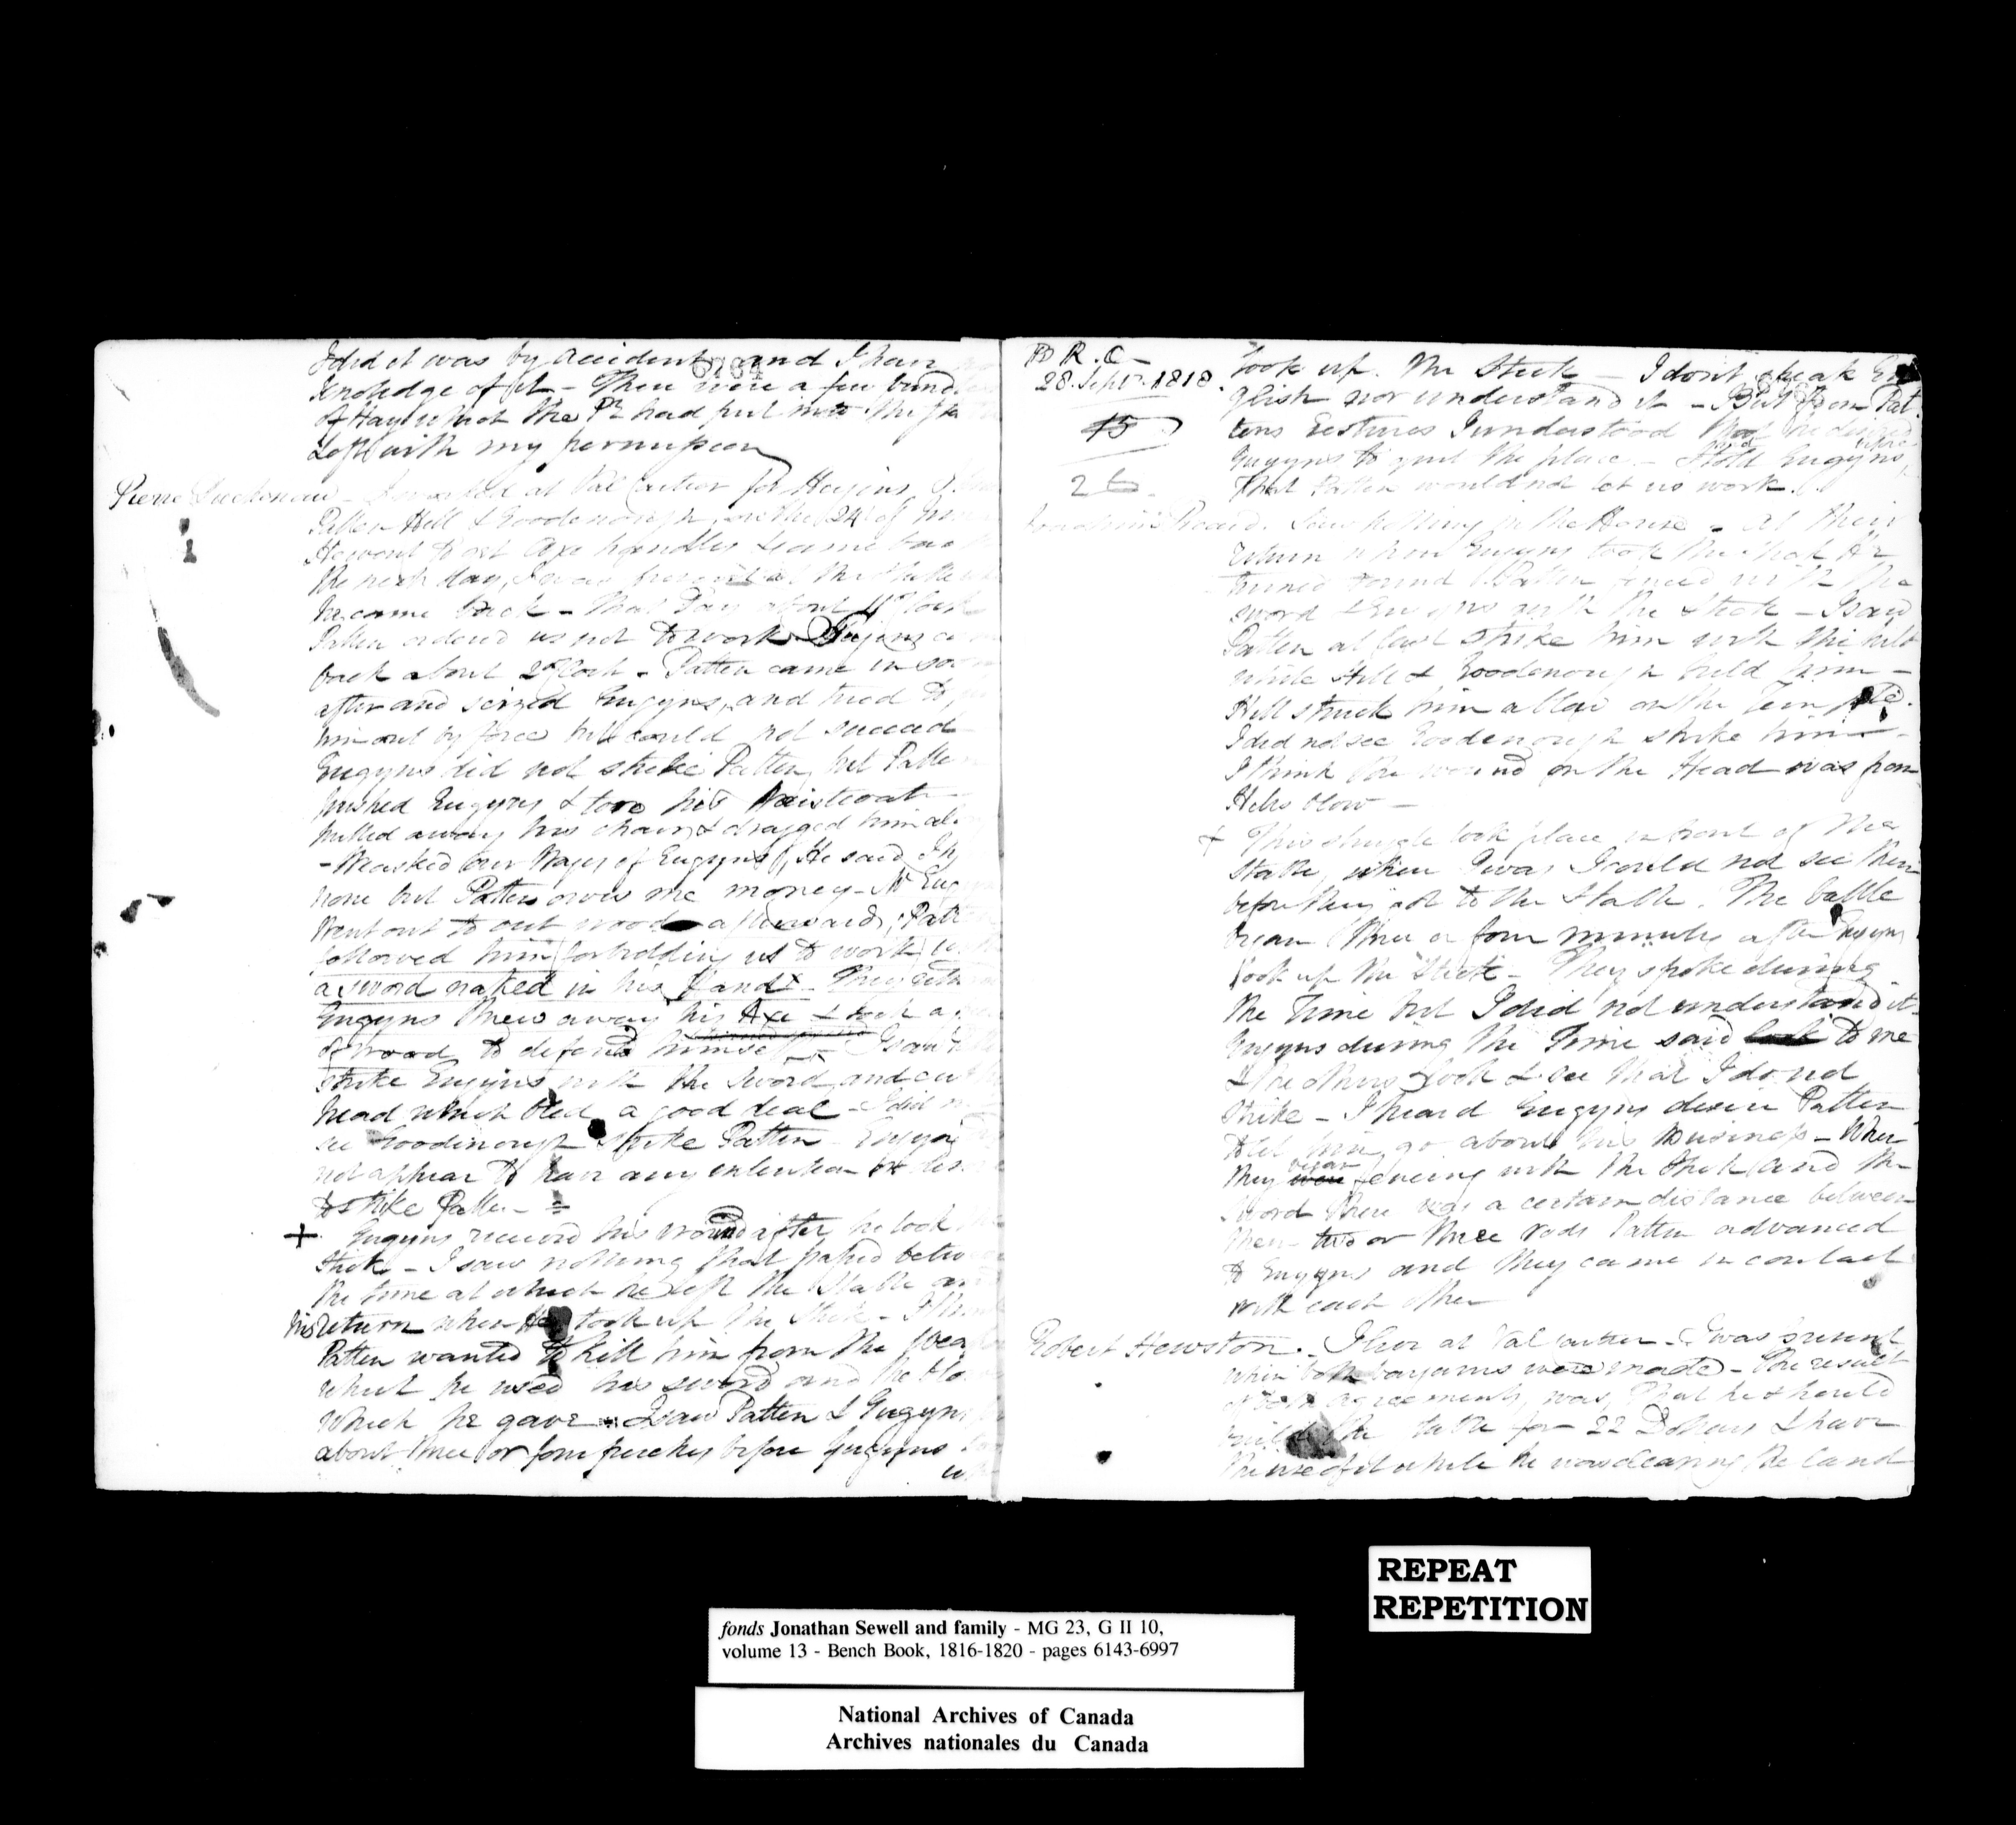 I did it was by accident and I have
Knowledge of it - There were a few bund
of Hay which the Pr had put into the
Left with my permission
Pierre - I worked at Val Cartier for Hugins
Patten Hill & Goodenough, on the 24 of
He went to get Axe handles & came back
the next day, I was present at the
he came back - that Day about 11 o'Clock
Patten ordered us not to work - Gugins ca
back about 2 o'Clock - Patten came in soon
after and seized Gugyns, and tried to
him out by force but could not succeed
Gugyns did not strike Patten, but Patten
pushed Gugyns & tore his Waistcoat -
pulled away his chair & dragged him al
- We asked our Wages of Gugyns, He said I h
none but Patten owes me money - Mr Gug
Went out to cut wood afterwards, Patt
followed him forbidding us to work
a sword naked in his hand x - They
Gugyns threw away his Axe & took a
of wood to defend himself - I saw
strike Gugyns with the Sword, and cut
head which bled a good deal - I did n
see Goodinough strike Patten - Gugyns
not appear to have any intention or des
to strike Patten -
+ Gugyns received his wound after he took
stick - I saw nothing that passed between
the time at which he left the Stable and
his return when He took up the Stick - I think
Patten wanted to kill him from the
which he used his sword and the blo
which he gave - I saw Patten & Gugyns
about three or four perches before Gugyns
B R. C -
28. Septr. 1818.
15
26
took up. the Stick - I don't speak En
glish nor understand it - But from Pat
tens Gestures I understood that he desired
Gugyns to quit the place - I told Gugyns
that Patten would not let us work.
Picard. Saw nothing in the House - at their
return when Gugyns took the stick He
turned round & Patten fenced with the
sword & Gugyns with the Stick - I saw
Patten at last strike him with the hilt
while Hill & Goodenough held him -
Hill struck him a blow on the Temple.
I did not see Goodenough strike him -
I think the wound on the Head was from
Hills blow -
+ This struggle took place in front of the
Stable, where I was I could not see them
before they got to the Stable. The battle
began three or four minutes after Gugyns
took up the Stick - They spoke during
the Time but I did not understand it -
Gugyns during the Time said to me
& the others look & see that I do not
strike - I heard Gugyns desire Patten
to let him go about his Business - When
they began fencing with the stick and the
sword there was a certain distance between
them - two or three rods Patten advanced
to Gugyns and they came in contact
with each other
Robert Hewston. - I live at Val Cartier - I was present
when both bargains were made - The result
of agreement was, that he should
build the stable for 22 Dollars & have
the use of it while he was clearing the land
REPEAT
REPETITION
fonds Jonathan Sewell and family - MG 23, G II 10,
volume 13 - Bench Book, 1816-1820 - pages 6143-6997
National Archives of Canada
Archives nationales du Canada